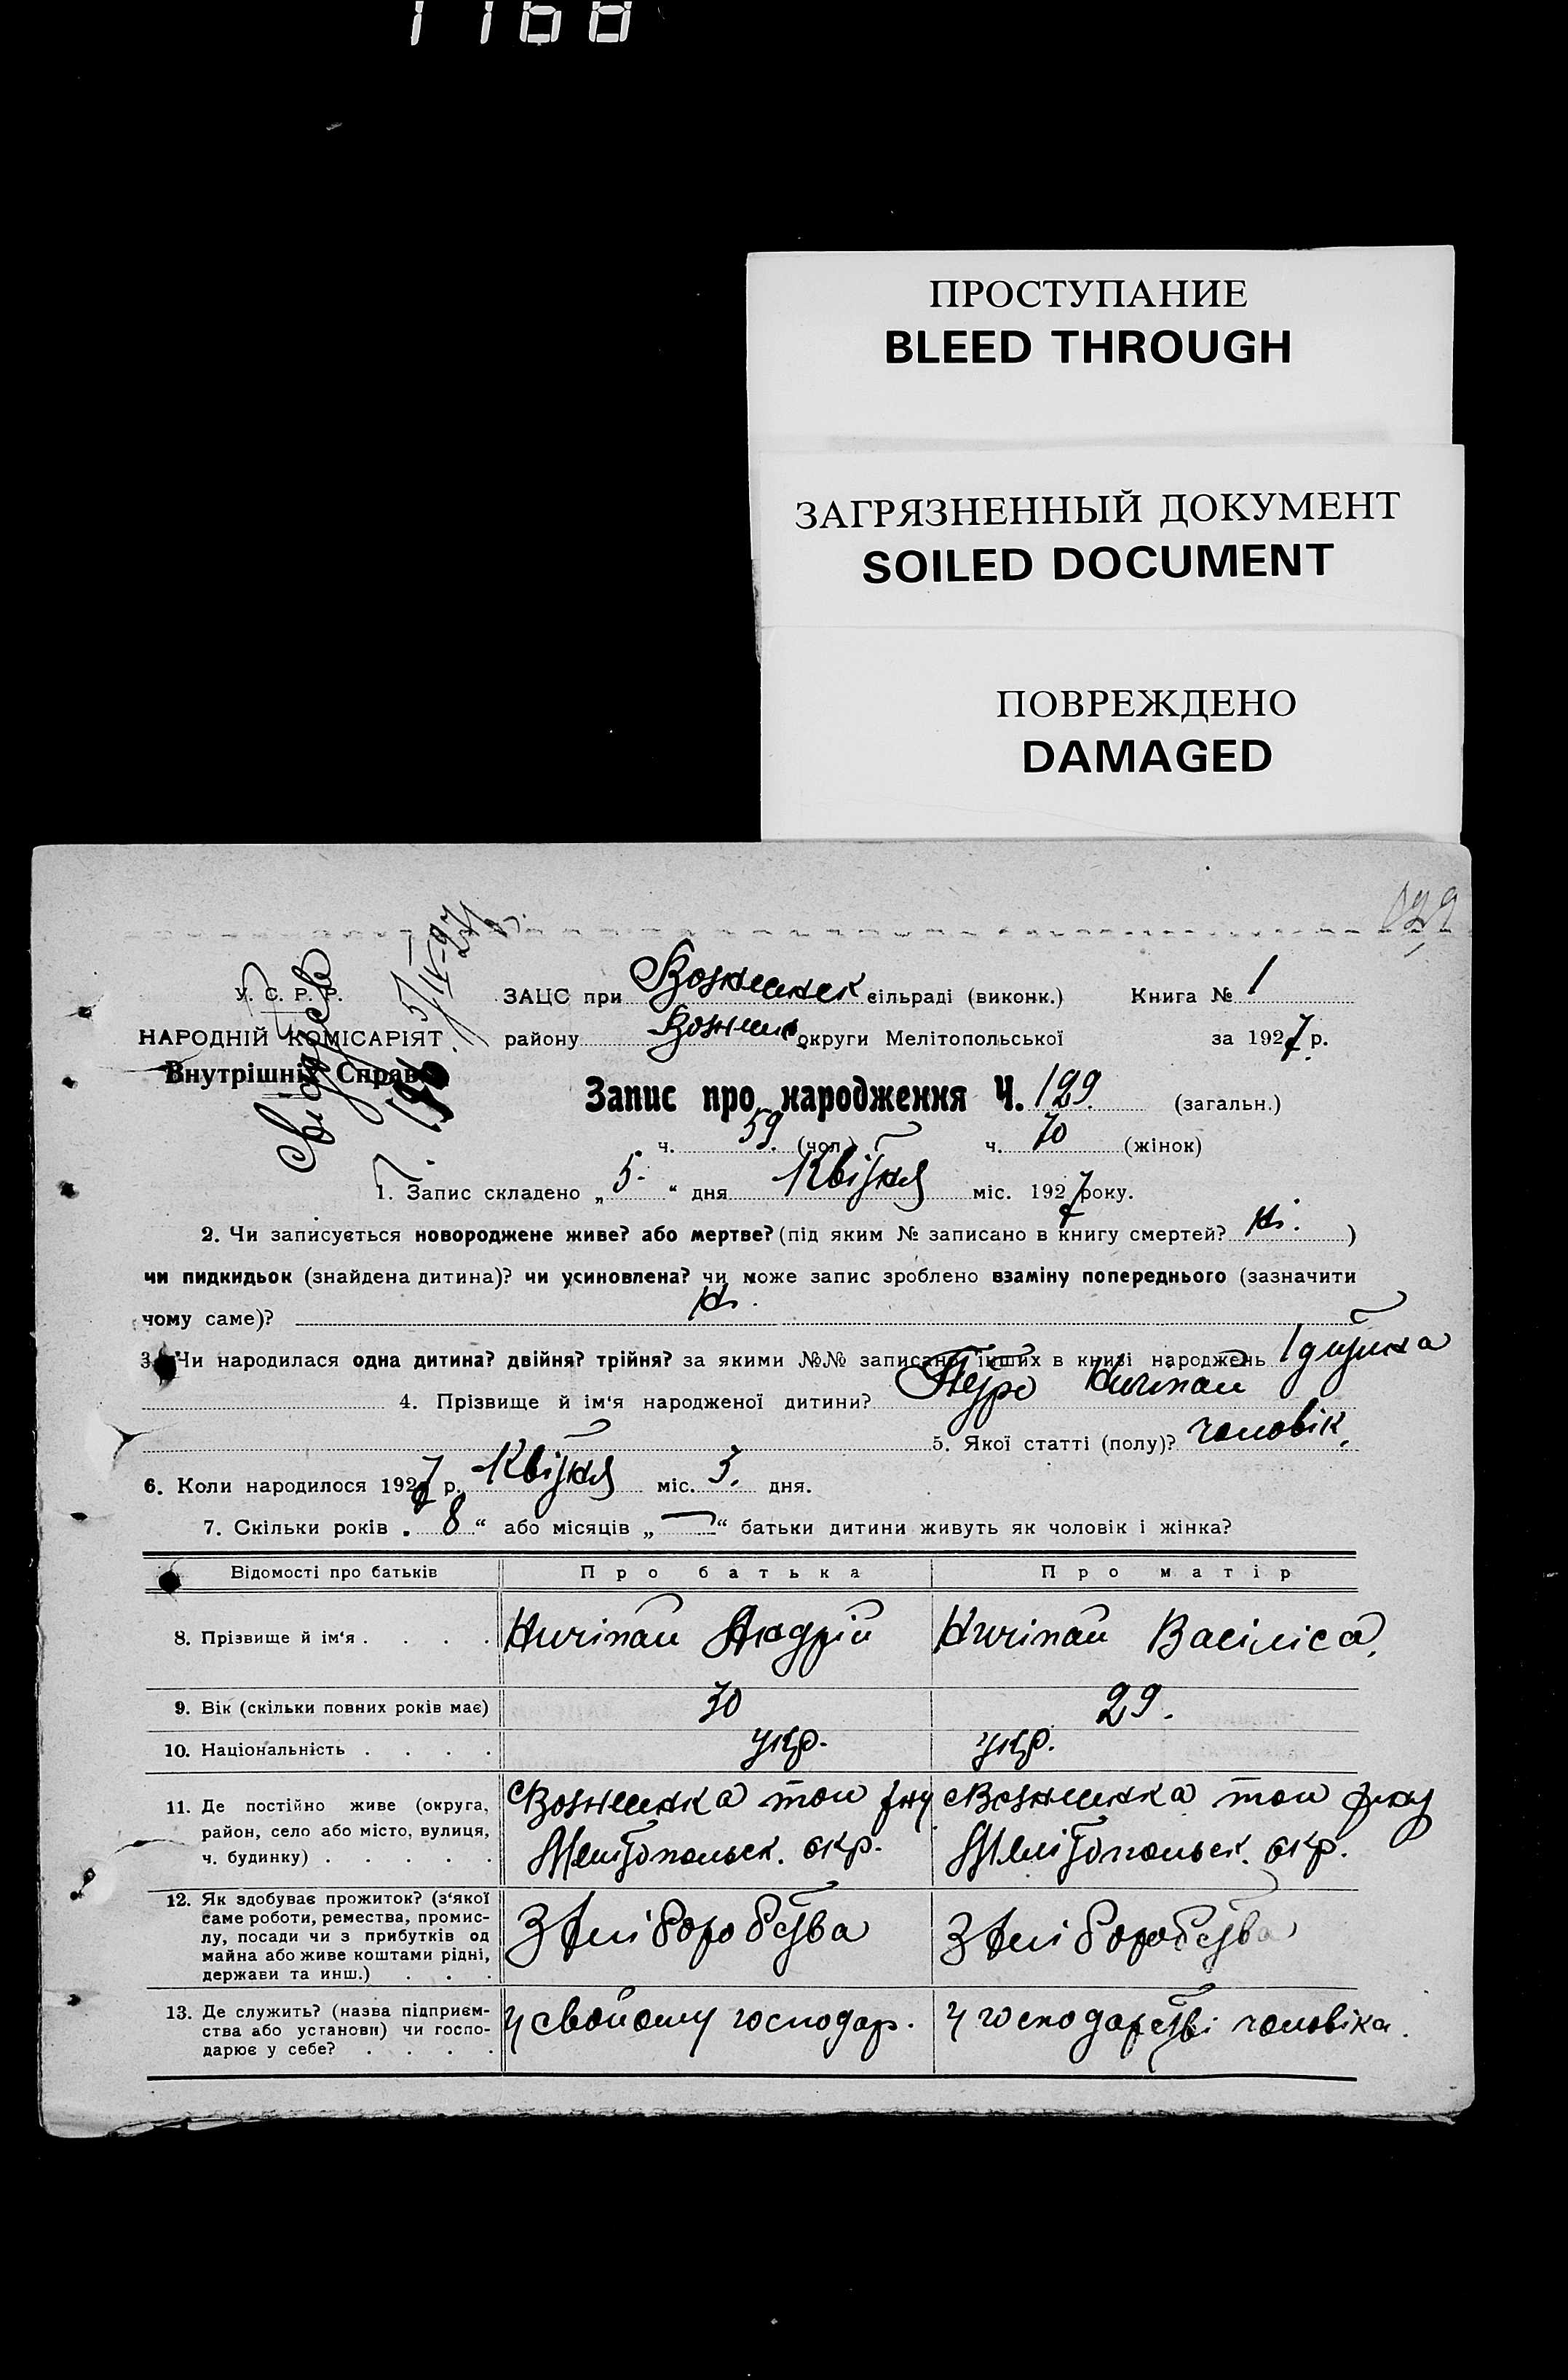 1168
ПРОСТУПАНИЕ
BLEED THROUGH
ЗАГРЯЗНЕННЫЙ ДОКУМЕНТ
SOILED DOCUMENT
ПОВРЕЖДЕНО
DAMAGED
129
У. С. Р. Р.
НАРОДНІЙ КОМІСАРІЯТ
Внутрішніх Справ
ЗАЦС при Вознесенск сільраді (виконк.) Книга № 1
району Вознес округи Мелітопольської за 1927 р.
Запис про народження Ч. 129. (загальн.)
ч. 59. (чол.) ч. 70 (жінок)
1. Запис складено „ 5 “ дня Квітня міс. 1927 року.
2. Чи записується новороджене живе? або мертве? (під яким № записано в книгу смертей? ні. )
чи пидкидьок (знайдена дитина)? чи усиновлена? чи може запис зроблено взаміну попереднього (зазначити
чому саме)? ні.
3. Чи народилася одна дитина? двійня? трійня? за якими №№ записано інших в книзі народжень 1 дитина
4. Прізвище й ім‘я народженої дитини? Петро Ничіпай
5. Якої статті (полу)? чоловік.
6. Коли народилося 1927 р. Квітня міс. 3. дня.
7. Скільки років „ 8 “ або місяців „ — “ батьки дитини живуть як чоловік і жінка?
Відомості про батьків Про батька Про матір
8. Прізвище й ім‘я . . . . Ничіпай Андрій Ничіпай Васіліса.
9. Вік (скільки повних років має) 30 29.
10. Національність . . . . укр. укр.
11. Де постійно живе (округа,
район, село або місто, вулиця,
ч. будинку) . . . . .
Мелітопольск. окр. Мелітопольск. окр.
12. Як здобуває прожиток? (з‘якої
саме роботи, ремества, промис-
лу, посади чи з прибутків од
майна або живе коштами рідні,
держави та инш.) . . .
З хліборобства З хліборобства
13. Де служить? (назва підприєм-
ства або установи) чи госпо-
дарює у себе? . . . .
У свойому господар. У господарстві чоловіка.